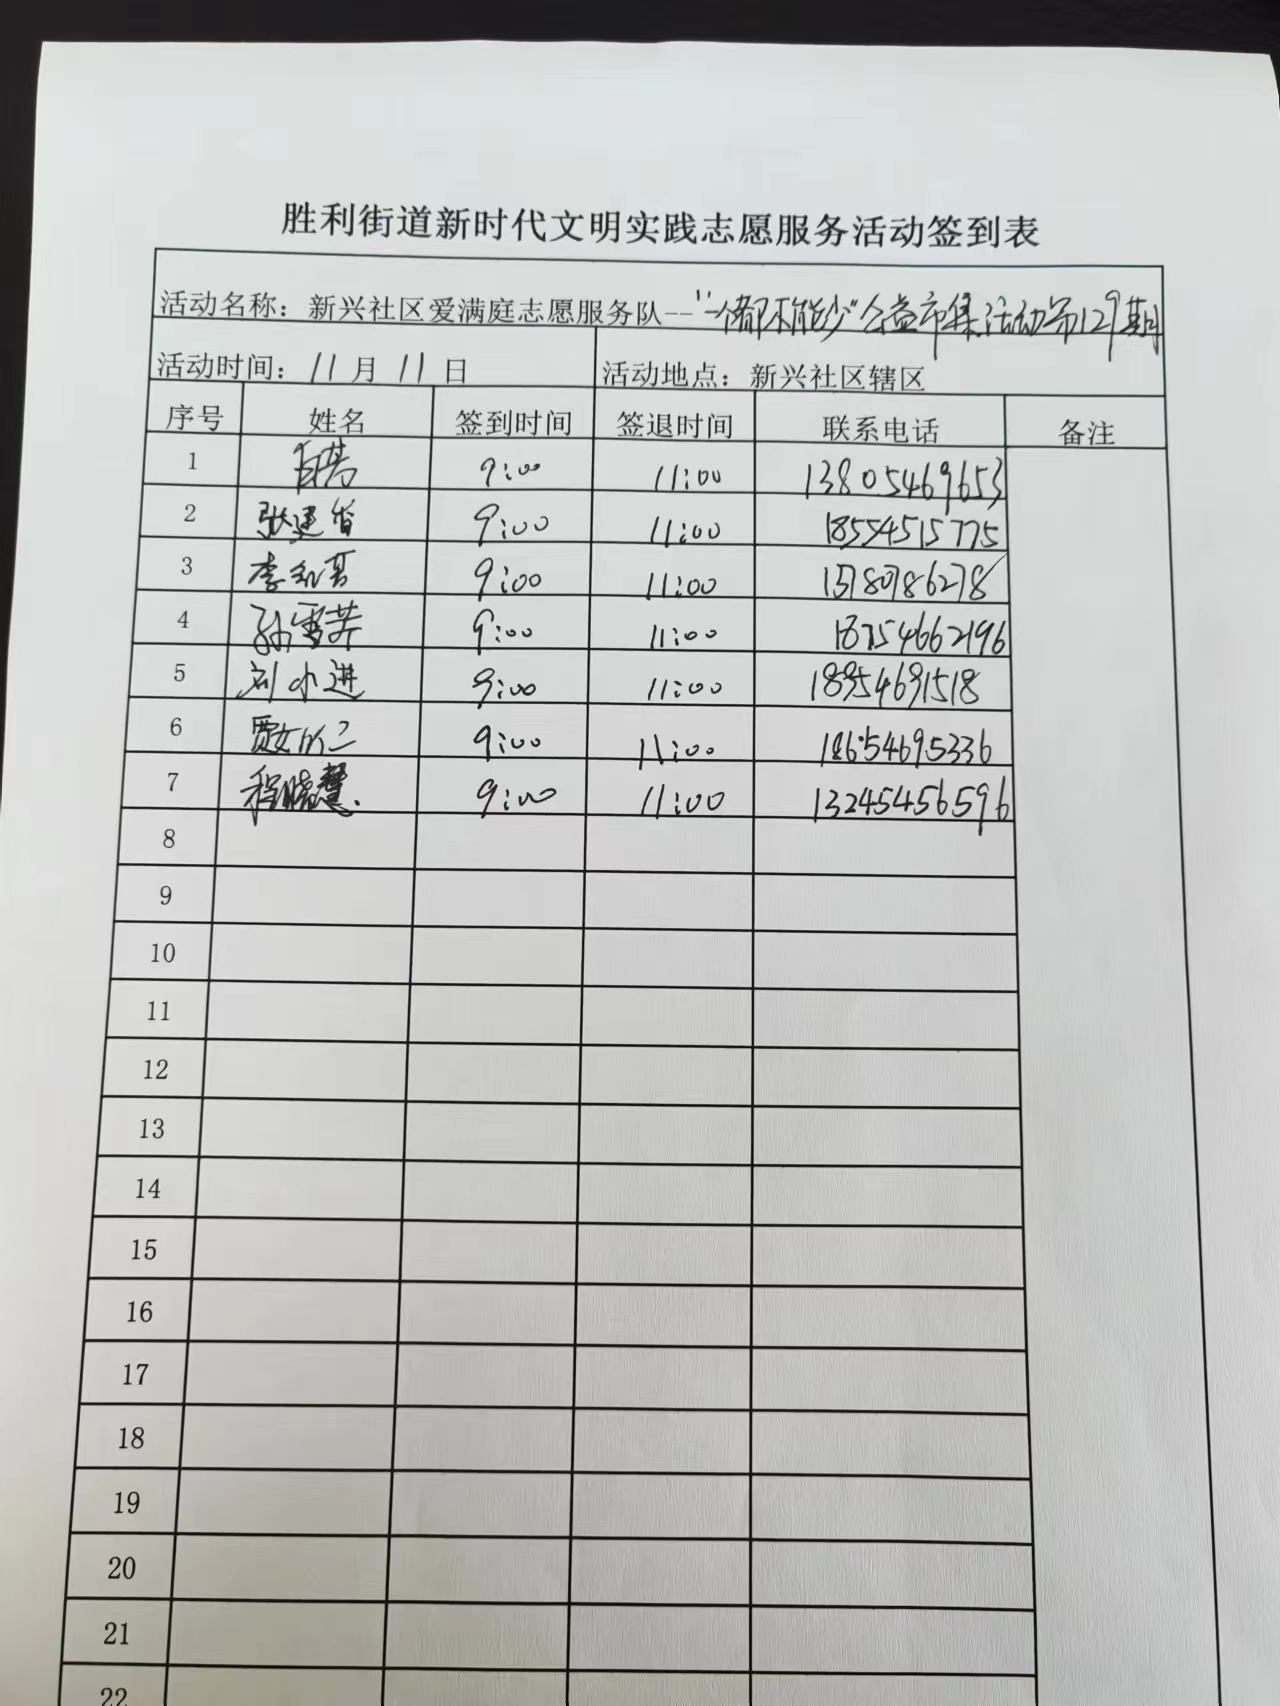 胜利街道新时代文明实践志愿服务活动签到表
活动名称：新兴社区爱满庭志愿服务队--"一个都不能少"公益市集活动第129期
活动时间：11月11日 活动地点：新兴社区辖区
序号 姓名 签到时间 签退时间 联系电话 备注
1 9:00 11:00 13805469653
2 张建 9:00 11:00 18554515775
3 李 9:00 11:00
4 孙雪芹 9:00 11:00 18754662196
5 刘小进 9:00 11:00 18954691518
6 贾 9:00 11:00 18654695336
7 程晓慧 9:00 11:00 13245456596
8
9
10
11
12
13
14
15
16
17
18
19
20
21
22